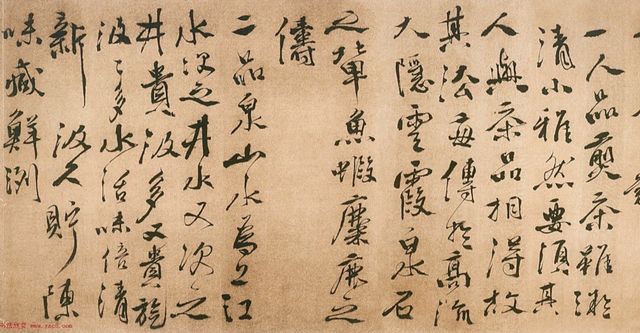 一人品煎茶雖微
清小雅然要須其
人與茶品相得故
其法每傳於高流
大隱雲霞泉石
之輩魚蝦麋鹿之
儔
二品泉山水為上江
水次之井水又次之
井貴汲多又貴旋
汲〻多水活味倍清
新汲久貯陳
味減鮮洌
www.yac8.com